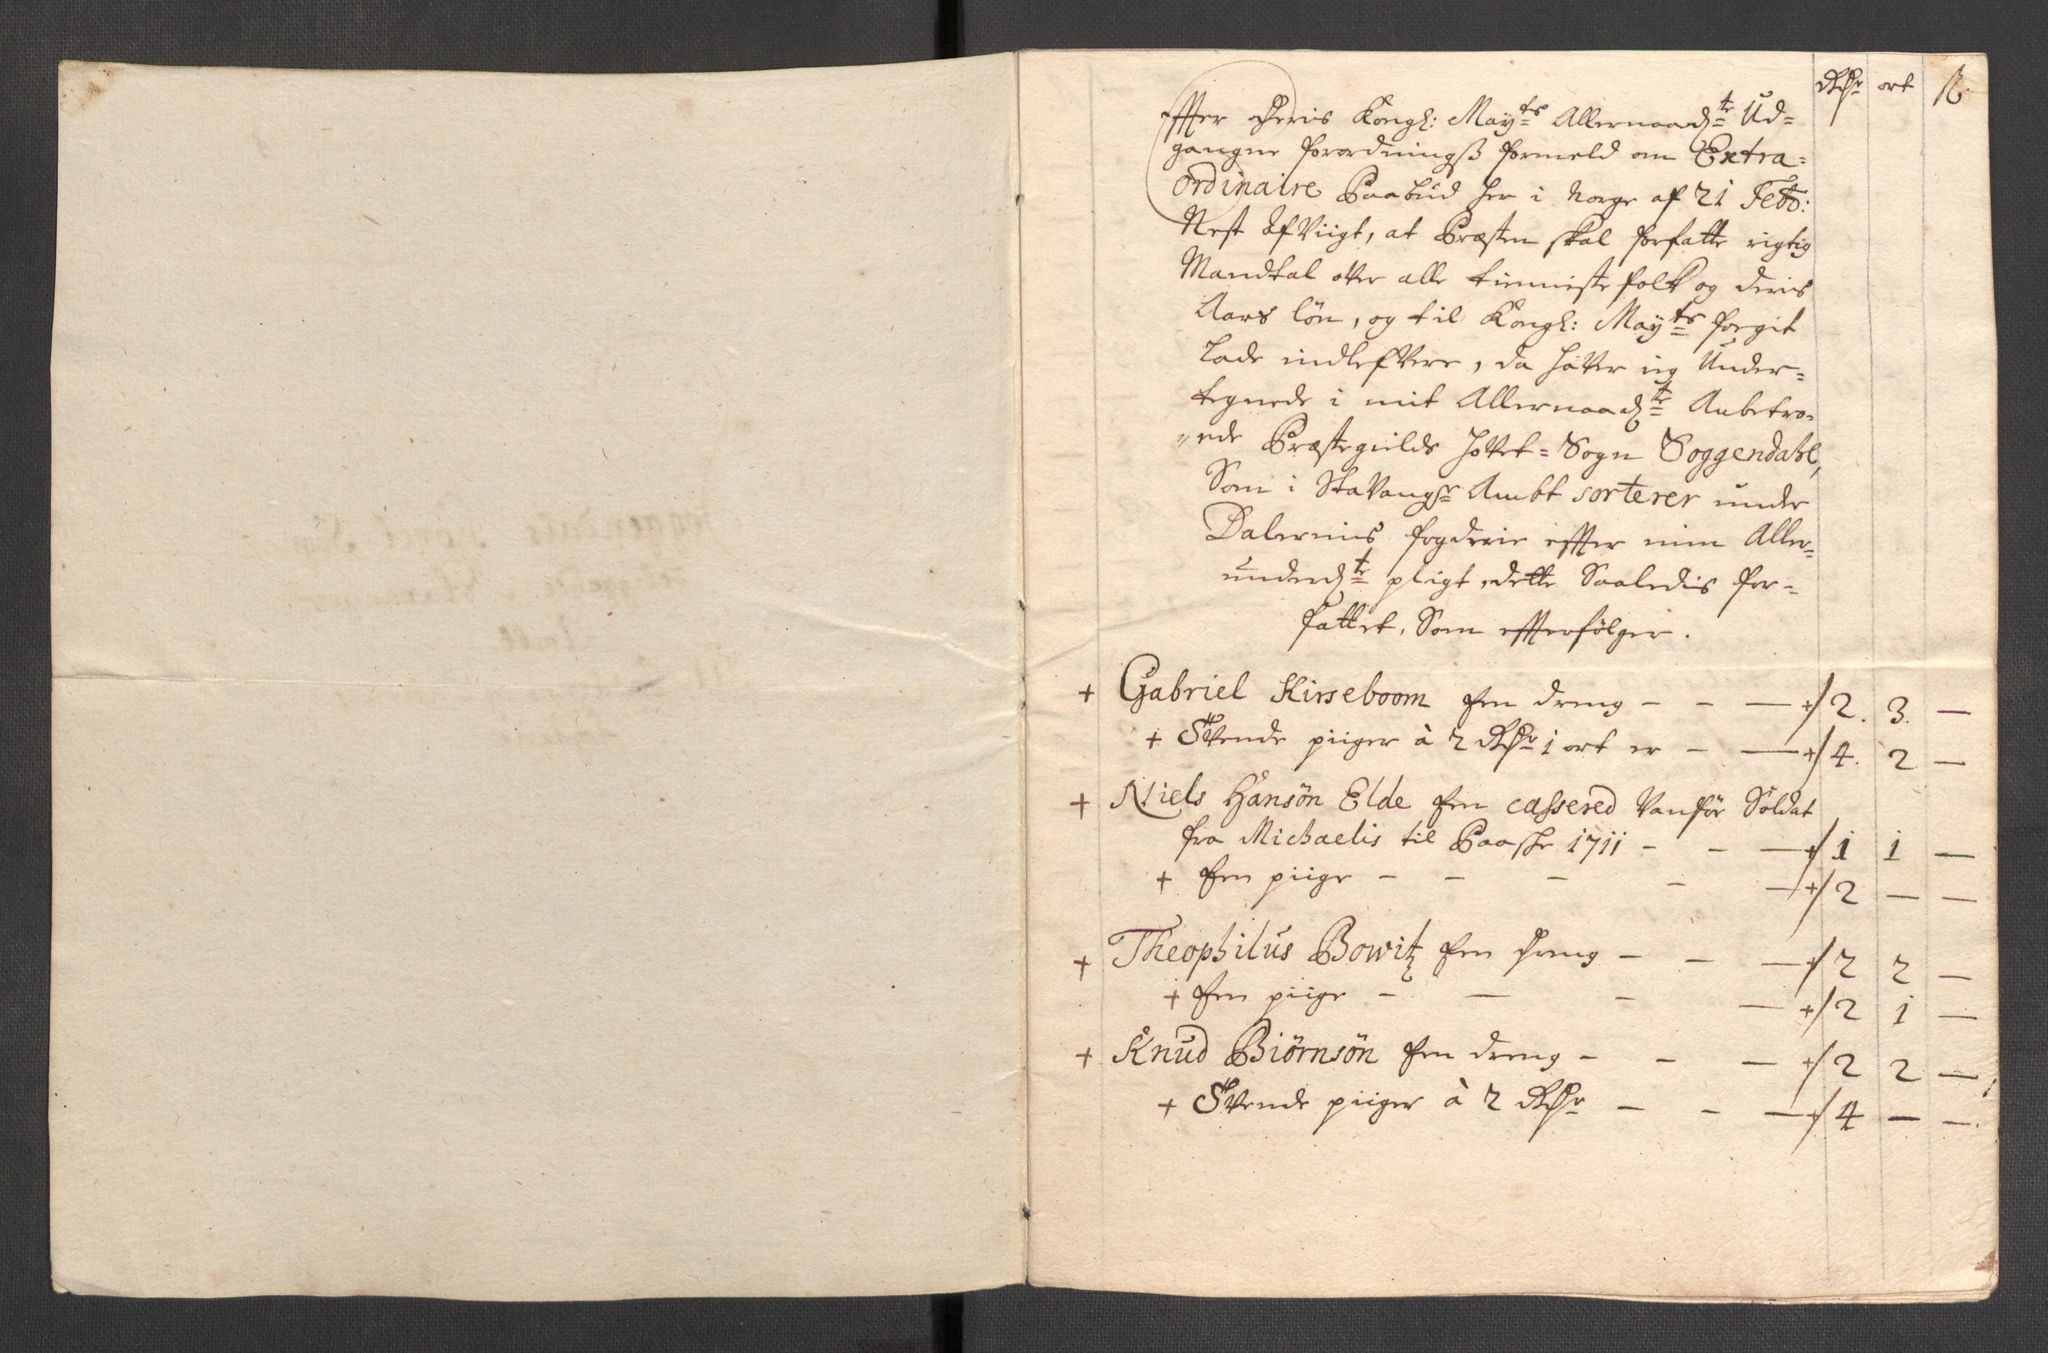 Rdr ort ß
Effter Deris Kongl: Mayts Allernaadte Ud=
gangne forordnings formeld om Extra=
ordinaire Paabud her i Norge af 21 Feb:
Nest Afviigt, at Præsten skal forfatte rigtig
Mandtal over alle tienniste folk og deris
Aars løn, og til Kongl: Mayts fogit
lade indlefvere, da haver ieg Under=
tegnede i mit Allernaadte Anbetro=
=ede Præstegields Hovet=Sogn Soggendahl,
Som i Stavangr Ambt sorterer under
Dalernis fogderie effter min Aller=
underdte pligt, dette Saaledis for=
fattet, Som effterfølger.
+ Gabriel Kirseboom Een dreng - - — +/ 2. 3. —
+ Tvende piiger à 2 Rdr 1 ort er - — +/ 4. 2 —
+ Niels Hansøn Elde Een cassered Vanfør Soldat
fra Michaelis til Paaske 1711 - - — +/ 1 1 —
+ Een piige - - - - — +/ 2 — —
+ Theophilus Bowitz Een Dreng - - — +/ 2 2 —
+ Een piige - - - — +/ 2 1 —
+ Knud Biørnsøn Een dreng - - — +/ 2 2 —
+ Tvende piiger à 2 Rdr - - — +/ 4 — —